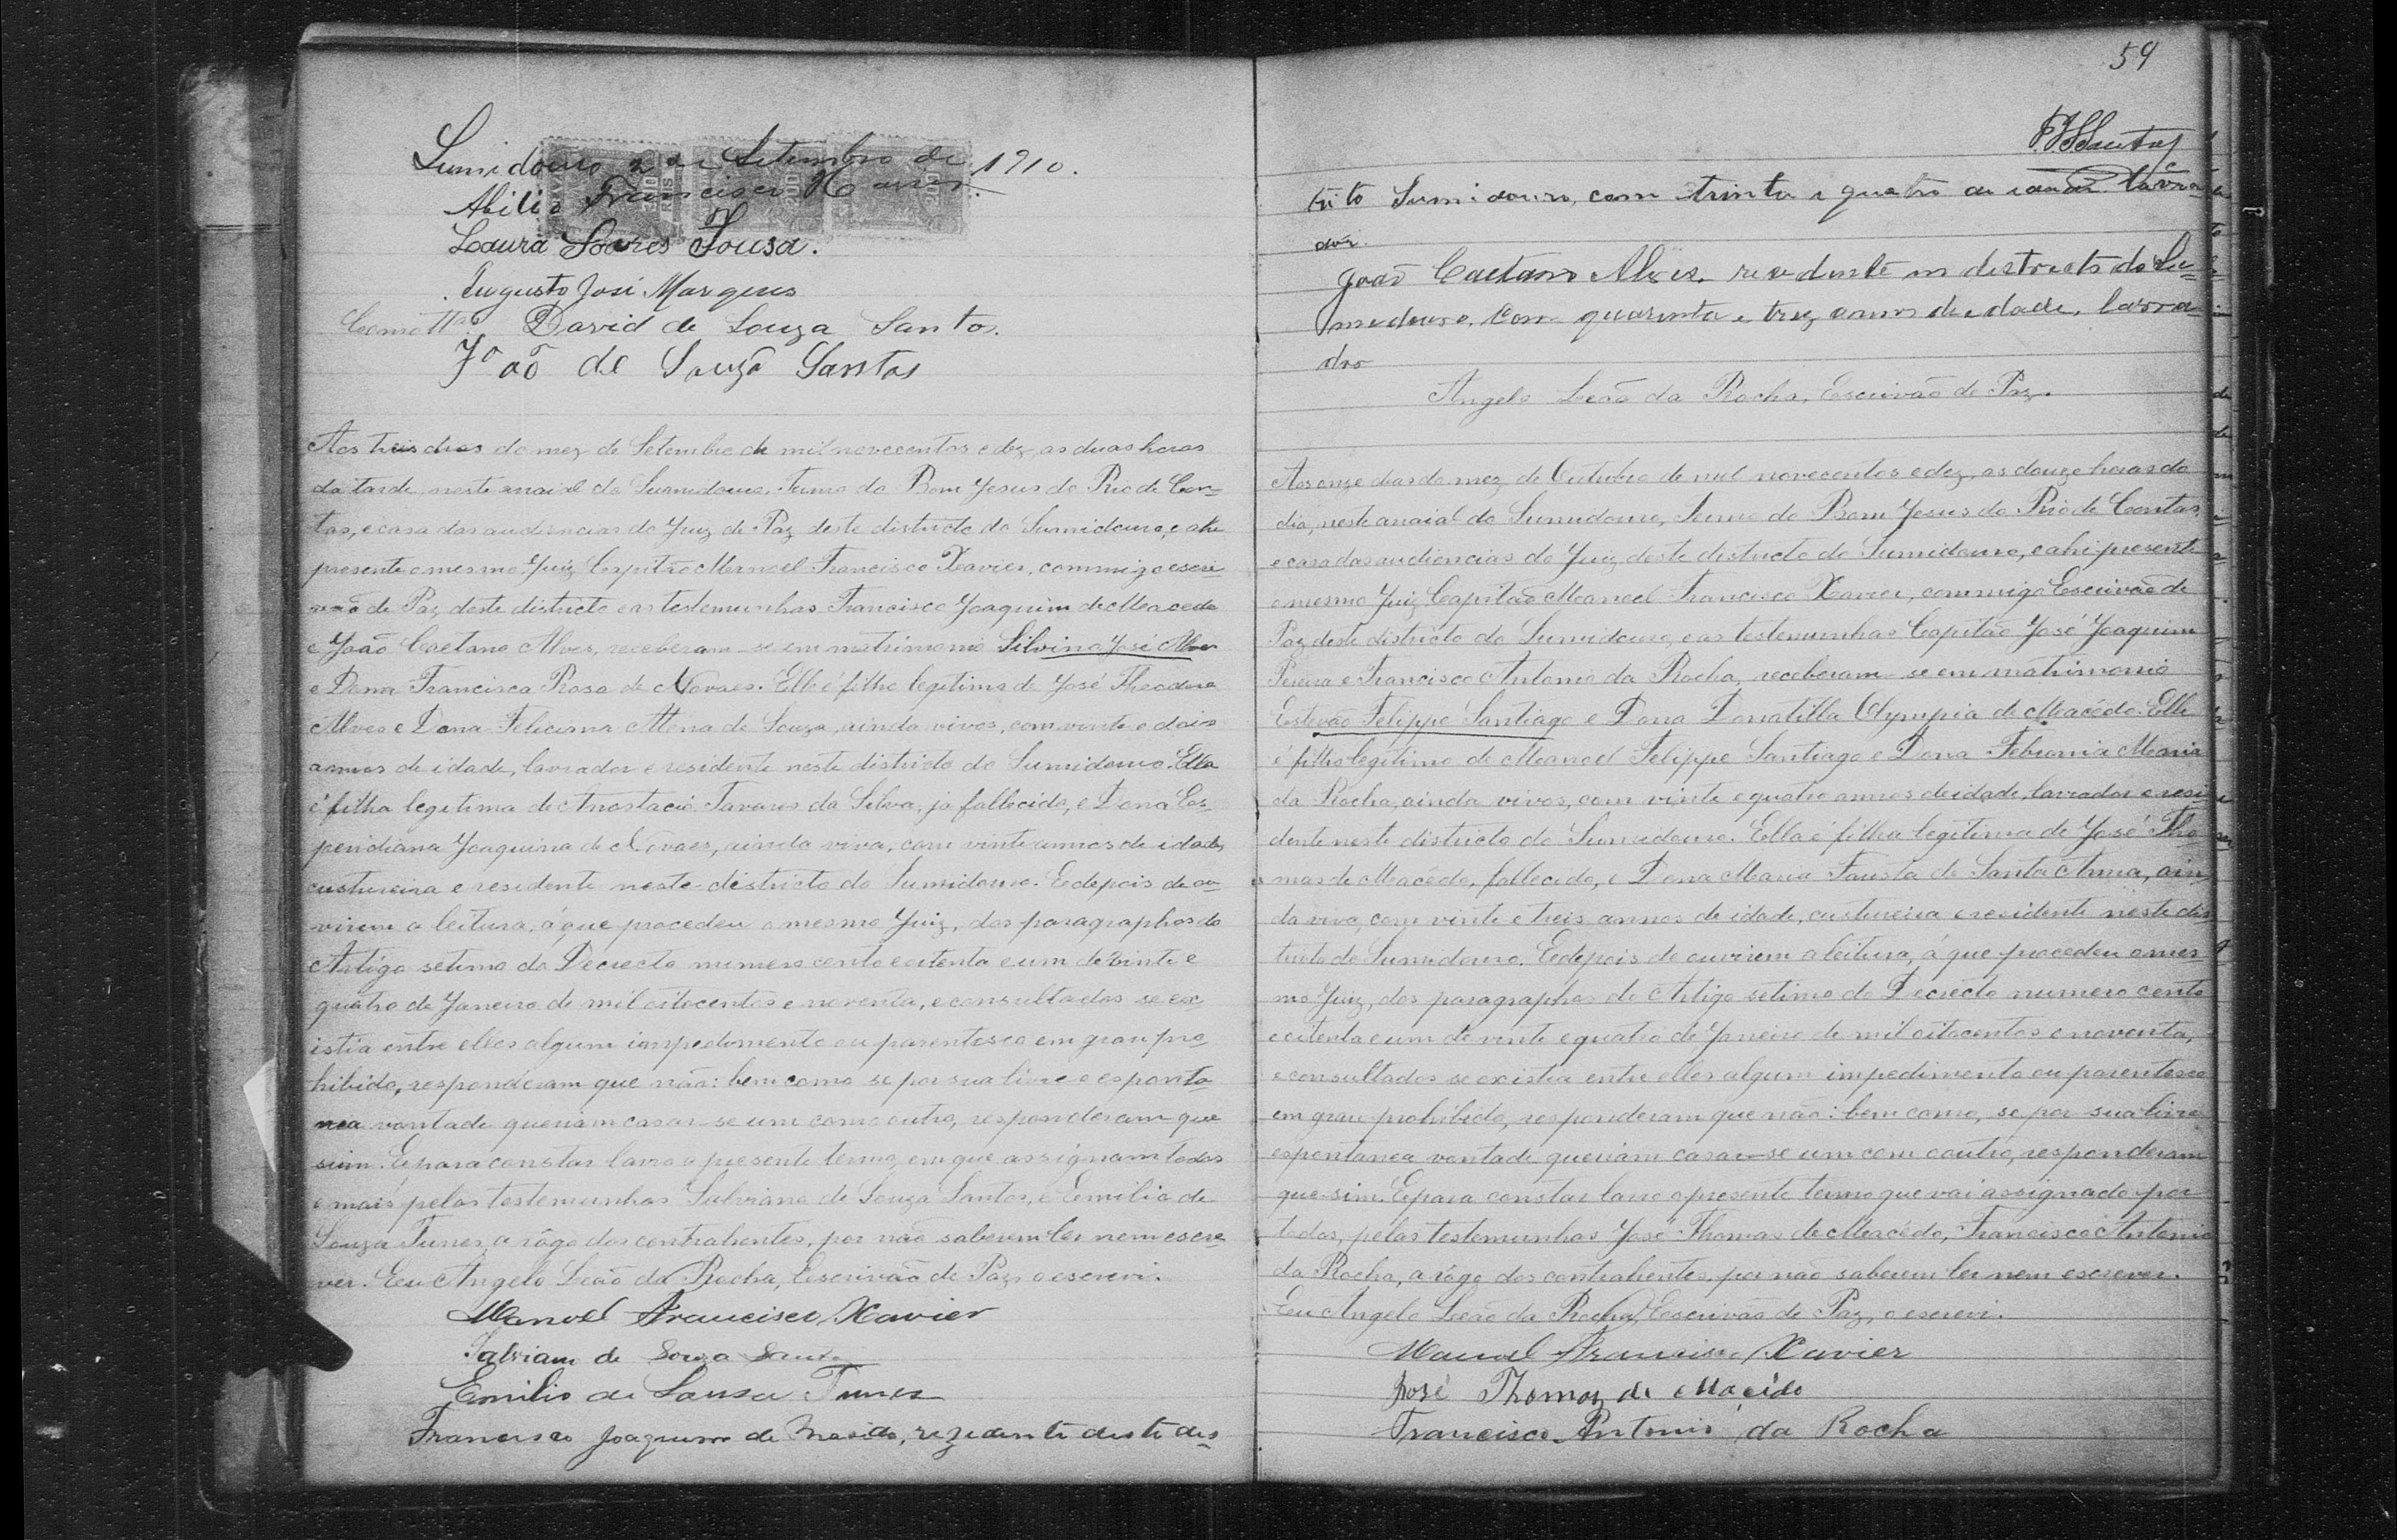 Sumidouro 2 de Setembro de 1910.
Abilio Francisco Xavier.
Laura Soares Sousa.
Augusto José Marques
David de Souza Santos.
João de Souza Santos
Aos tres dias do mez de Setembro de mil novecentos e dez, as duas horas
da tarde neste arraial do Sumidouro, Termo do Bom Jesus do Rio de Con-
tas, e casa das audiencias do Juiz de Paz deste districto do Sumidouro, e ahi
presente o mesmo Juiz Capitão Manoel Francisco Xavier, commigo escri-
vão de Paz deste districto e as testemunhas Francisco Joaquim de Macedo
e João Caetano Alves, receberam-se em matrimonio Silvino José Alves
e Dona Francisca Rosa de Novaes. Elle é filho legitimo de José Theodoro
Alves e Dona Feliciana Maria de Souza, ainda vivos, com vinte e dois
annos de idade, lavrador e residente neste districto do Sumidouro. Ella
é filha legitima de Anastacio Tavares da Silva, já fallecido, e Dona Es-
peridiana Joaquina de Novaes, ainda viva, com vinte annos de idade,
custureira e residente neste districto do Sumidouro. E depois de ou-
virem a leitura, á que procedeu o mesmo Juiz, dos paragraphos do
Artigo setimo do Decrecto numero cento e oitenta e um de vinte e
quatro de Janeiro de mil oitocentos e noventa, e consultados se ex-
istia entre elles algum impedimento ou parentesco em grau pro-
hibido, responderam que não: bem como se por sua livre e esponta-
nea vontade queriam casar-se um com o outro, responderam que
sim. E para constar lavro o presente termo, em que assignam todos
e mais pelas testemunhas Salviano de Souza Santos, e Emilio de
Souza Funes, a rôgo dos contrahentes, por não saberem ler nem escre-
ver. Eu Angelo Leão da Rocha, Escrivão de Paz o escrevi.
Manoel Francisco Xavier
Salviano de Souza Santos
Emilio de Sousa Funes
Francisco Joaquim de Macedo, rezidente deste dis-
59
tricto Sumidouro, com trinta e quatro de idade lavra-
dor.
João Caetano Alves, residente no destrecto do Su-
midouro. Com quarenta e trez annos de edade, lavra-
dro
Angelo Leão da Rocha, Escrivão de Paz.
Aos onze dias do mez de Outubro de mil novecentos e dez, as douze horas do
dia, neste arraial do Sumidouro, Termo do Bom Jesus do Rio de Contas,
e casa das audiencias do Juiz deste destricto do Sumidouro, e ahi presente
o mesmo Juiz Capitão Manoel Francisco Xavier, commigo Escrivão de
Paz deste districto do Sumidouro, e as testemunhas Capitão José Joaquim
Pereira e Francisco Antonio da Rocha, receberam-se em matrimonio
Estevão Felippe Santiago e Dona Donatilla Olympia de Macêdo. Elle
é filho legitimo de Manoel Felippe Santiago e Dona Febronia Maria
da Rocha, ainda vivos, com vinte e quatro annos de idade, lavrador e resi-
dente neste districto do Sumidouro. Ella é filha legitima de José Tho-
mas de Macêdo, fallecido, e Dona Maria Fausta de Santa Anna, ain-
da viva, com vinte e treis annos de idade, custureira e residente neste dis-
tricto do Sumidouro. E depois de ouvirem a leitura, á que procedeu o mes-
mo Juiz, dos paragraphos do Artigo setimo do Decrecto numero cento
e oitenta e um de vinte e quatro de Janeiro de mil oitocentos e noventa,
e consultados se existia entre elles algum impedimento ou parentesco
em grau prohibido, responderam que não: bem como, se por sua livre
espontanea vontade queriam casar-se um com o outro, responderam
que sim. E para constar lavro o presente termo que vai assignado por
todos, pelas testemunhas José Thomas de Macêdo, Francisco Antonio
da Rocha, a rôgo dos contrahentes por não saberem ler nem escrever.
Eu Angelo Leão da Rocha, Escrivão de Paz, o escrevi.
Manoel Francisco Xavier
José Thomaz de Macêdo
Francisco Antonio da Rocha